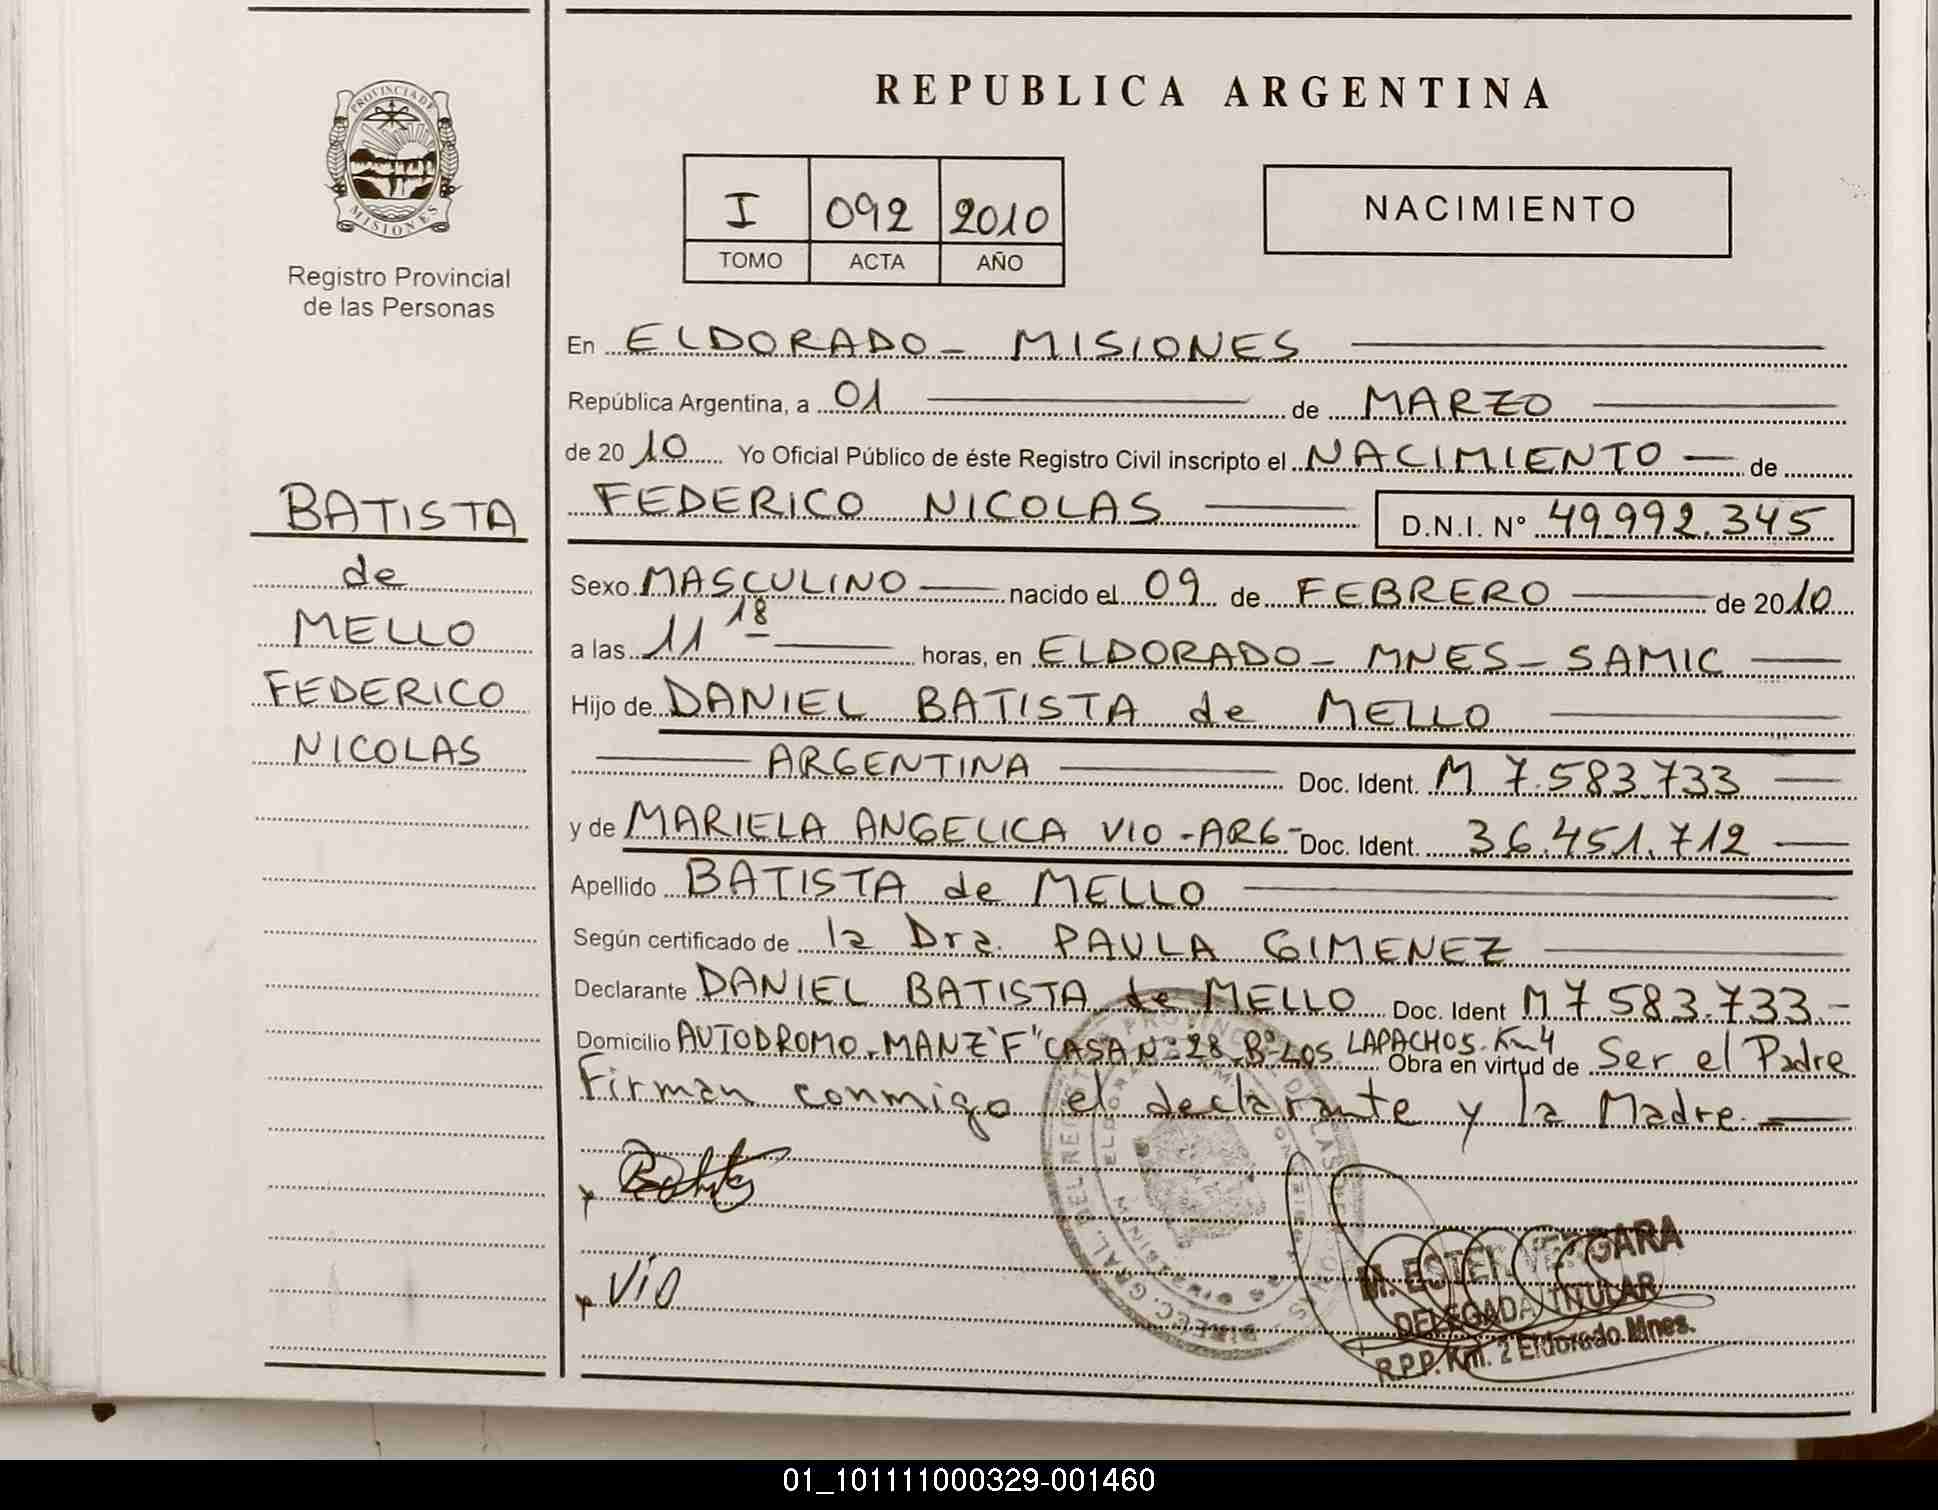 PROVINCIA DE
MISIONES
Registro Provincial
de las Personas
BATISTA
de
MELLO
FEDERICO
NICOLAS
REPUBLICA ARGENTINA
I 092 2010
TOMO ACTA AÑO
NACIMIENTO
En ELDORADO - MISIONES
República Argentina, a 01 de MARZO
de 2010 Yo Oficial Público de éste Registro Civil inscripto el NACIMIENTO de
FEDERICO NICOLAS D.N.I. N° 49.992.345
Sexo MASCULINO nacido el 09 de FEBRERO de 2010
a las 11 18 horas, en ELDORADO - MNES - SAMIC
Hijo de DANIEL BATISTA de MELLO
ARGENTINA Doc. Ident. M 7.583.733
y de MARIELA ANGELICA VIO - ARG - Doc. Ident. 36.451.712
Apellido BATISTA de MELLO
Según certificado de la Dra. PAULA GIMENEZ
Declarante DANIEL BATISTA de MELLO Doc. Ident M 7.583.733.-
Domicilio AUTODROMO - MANZ "F" CASA N° 28 - B° LOS LAPACHOS. Km 4 Obra en virtud de Ser el Padre
Firman conmigo el declarante y la Madre.
Vio
M. ESTER VERGARA
DELEGADA TITULAR
R.P.P. Km. 2 Eldorado Mnes.
01_101111000329-001460